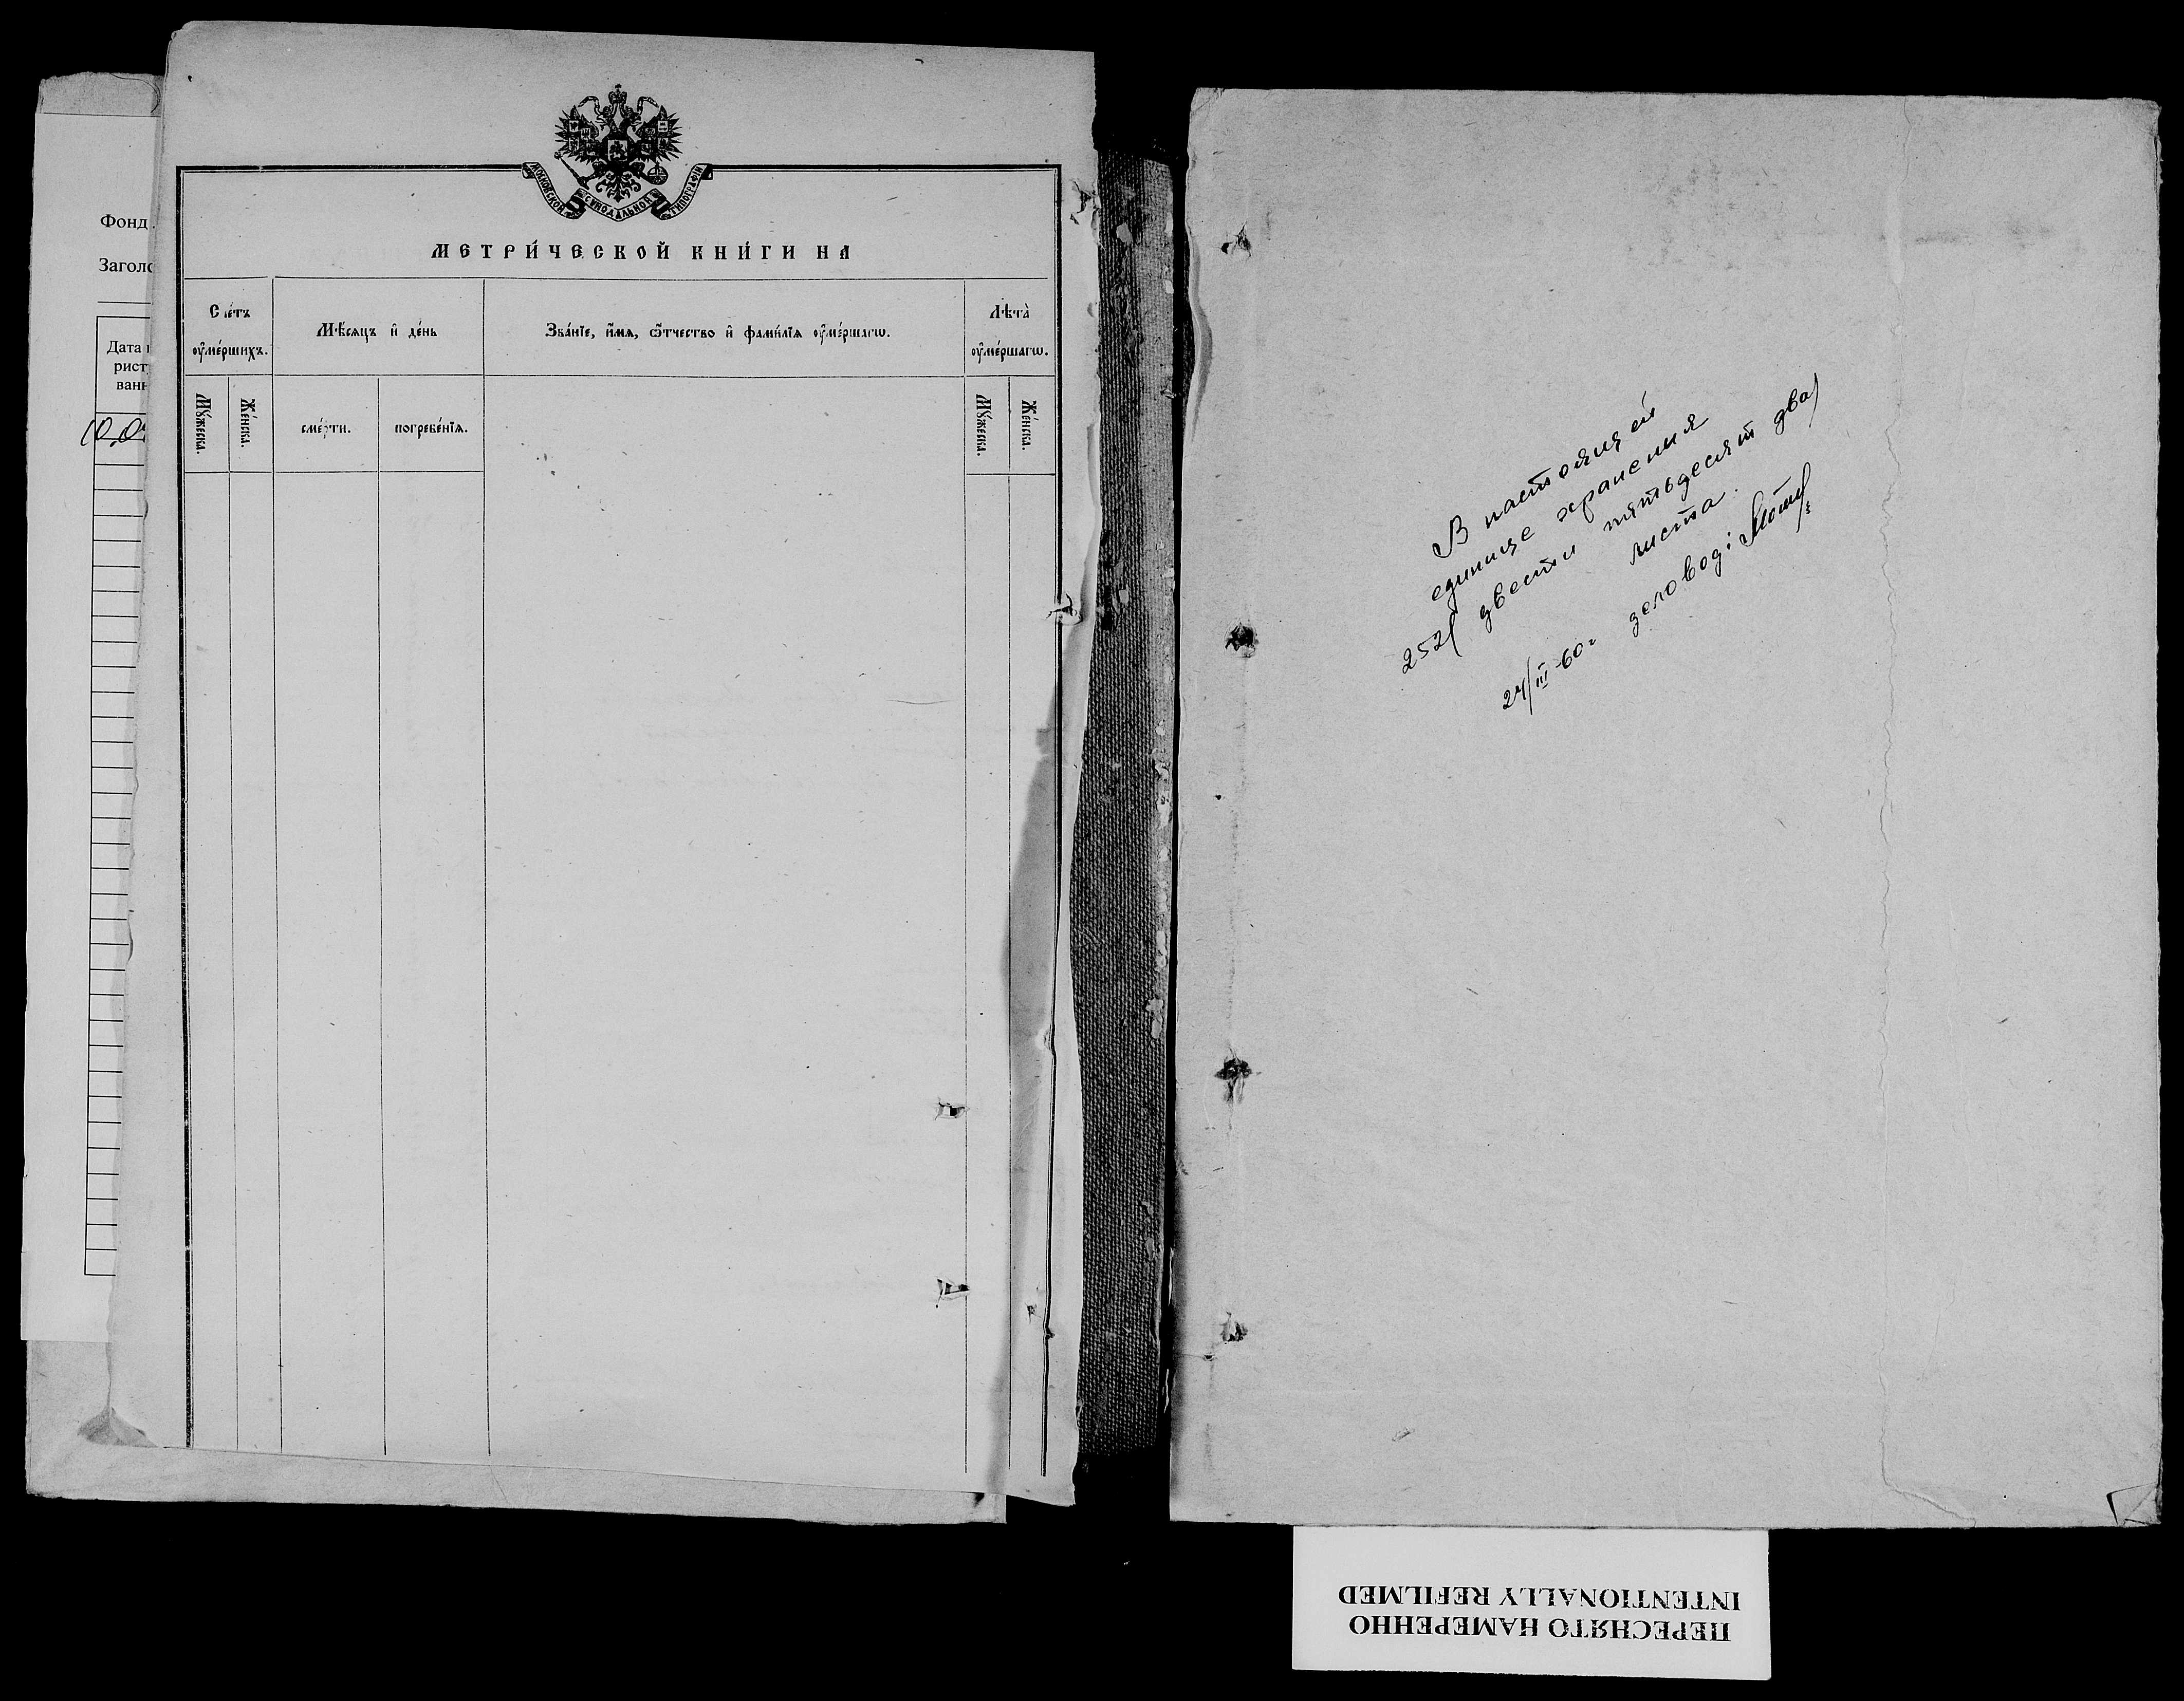 Фонд
Заголо
Дата и
рист
ванн
10.0
МОСКОВСКОЙ СѴНОДАЛЬНОЙ ТИПОГРАФІИ
МЕТРИ́ЧЕСКОЙ КНИ́ГИ НА
Сче́тъ
ᲂу҆ме́ршихъ.
Мѣ́сяцъ и҆ де́нь
Зва́нїе, и҆́мѧ, ѻ҆́тчество и҆ фами́лїѧ ᲂу҆ме́ршагѡ.
Лѣта̀
ᲂу҆ме́ршагѡ.
Мꙋ́жеска.
Же́нска.
сме́рти.
погребе́нїѧ.
Мꙋ́жеска.
Же́нска.
В настоящей
единице хранения
252/ двести пятьдесят два/
листа.
24/III-60г деловод:
ПЕРЕСНЯТО НАМЕРЕННО
INTENTIONALLY REFILMED